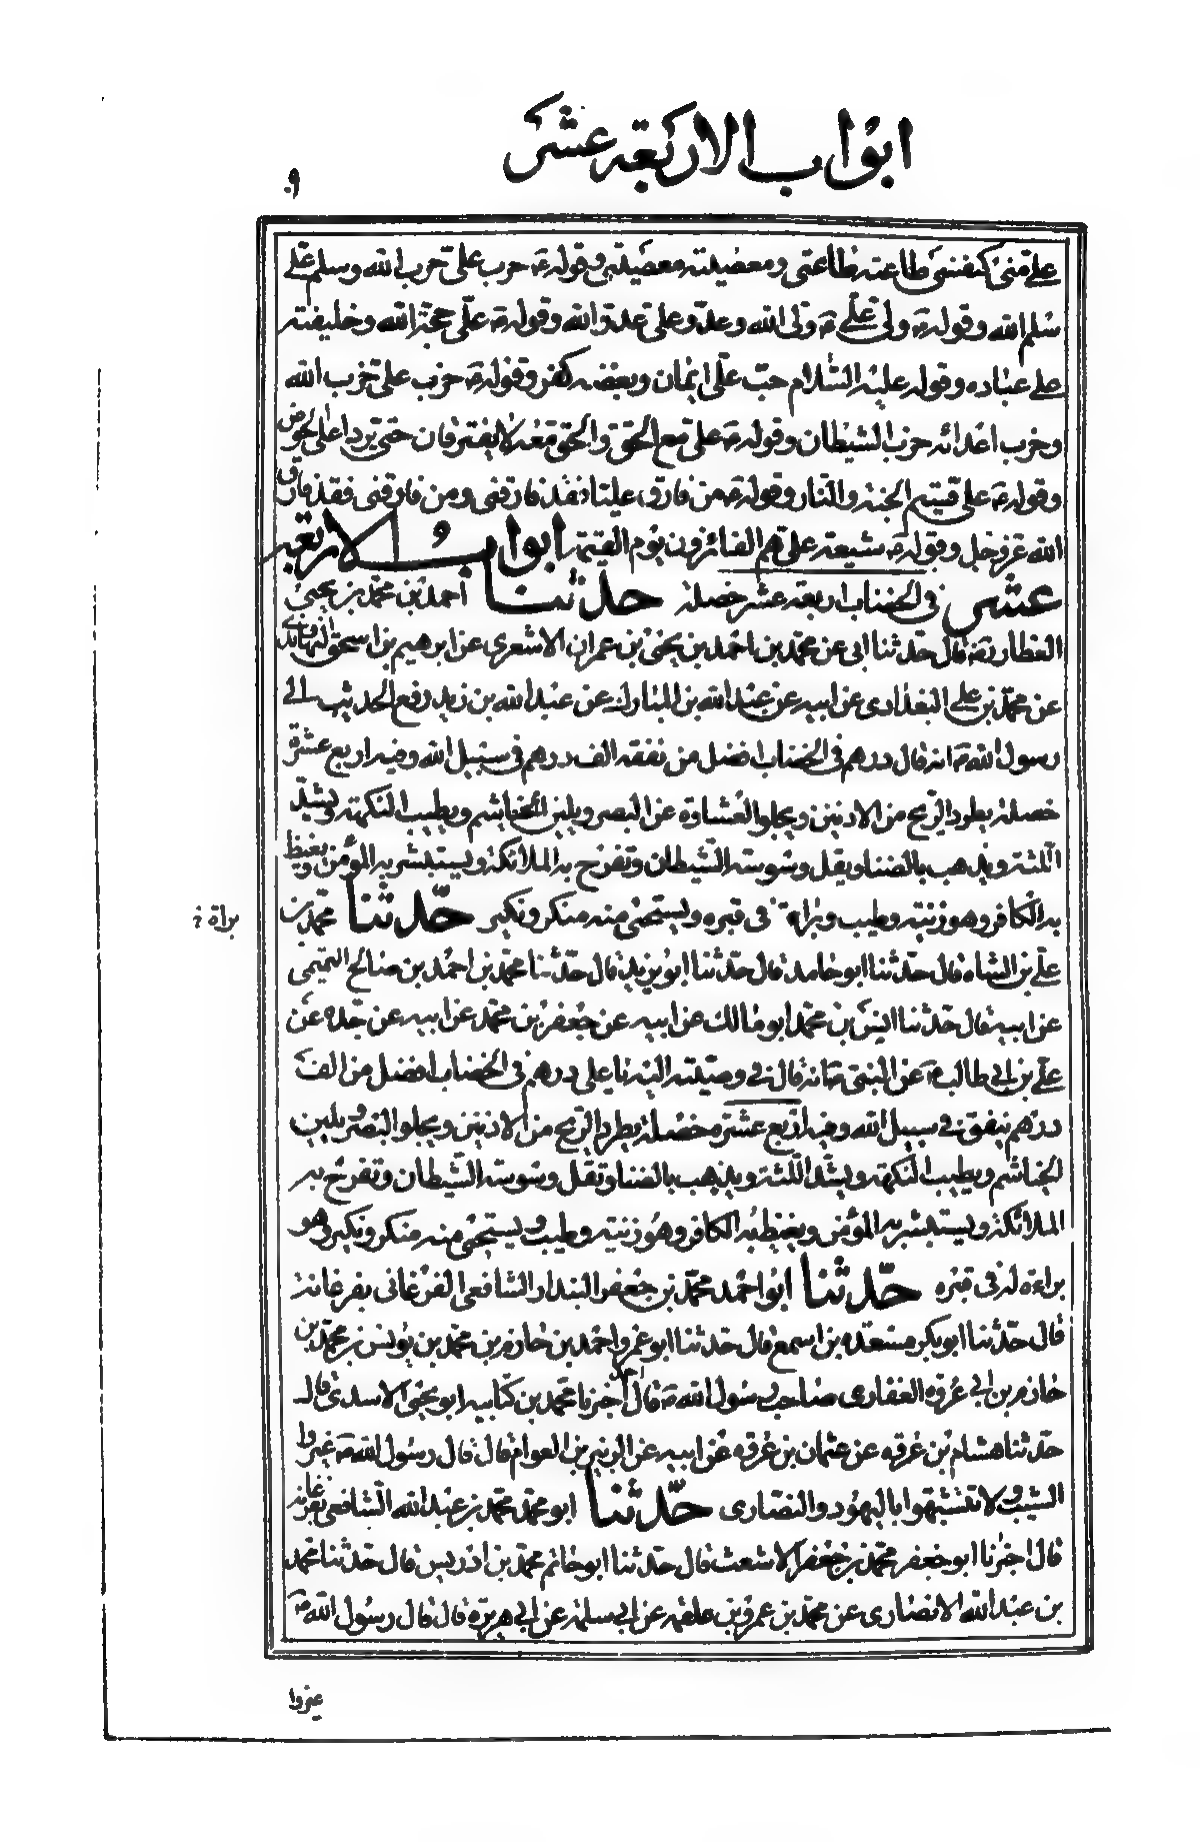 ابواب الاربعة عشر
٩
علي مني كنفسي طاعته طاعتي ومعصيته معصيتي وقوله ص حرب علي حرب الله وسلم علي
سلم الله وقوله ص ولي علي ولي الله وعدو علي عدو الله وقوله ص علي حجة الله وخليفته
علي عباده وقوله عليه السلام حب علي ايمان وبغضه كفر وقوله ص حزب علي حزب الله
وحزب اعدائه حزب الشيطان وقوله ص علي مع الحق والحق معه لا يفترقان حتى يردا على الحوض
وقوله ص علي قسيم الجنة والنار وقوله ص من فارق عليا فقد فارقني ومن فارقني فقد فارق
الله عز وجل وقوله ص شيعة علي هم الفائزون يوم القيمة ابواب الاربعة
عشر في الخضاب اربعة عشر خصلة حدثنا احمد بن محمد بن يحيى
العطار ره قال حدثنا ابي عن محمد بن احمد بن يحيى بن عمران الاشعري عن ابرهيم بن اسحق النهاوندي
عن محمد بن علي البغدادي عن ابيه عن عبد الله بن المبارك عن عبد الله بن زيد رفع الحديث الى
رسول الله ص انه قال درهم في الخضاب افضل من نفقة الف درهم في سبيل الله وفيه اربع عشرة
خصلة يطرد الريح من الاذنين ويجلو الغشاوة عن البصر ويلين الخياشيم ويطيب النكهة ويشد
اللثة ويذهب بالضنا ويقل وسوسة الشيطان وتفرح به الملائكة ويستبشر به المؤمن ويغيظ
به الكافر وهو زينة وطيب وبراءة في قبره ويستحيي منه منكر ونكير حدثنا محمد بن
براة خ
علي بن الشاه قال حدثنا ابو حامد قال حدثنا ابو يزيد قال حدثنا محمد بن احمد بن صالح التميمي
عن ابيه قال حدثنا انس بن محمد ابو مالك عن ابيه عن جعفر بن محمد عن ابيه عن جده عن
علي بن ابي طالب ع عن النبي ص انه قال في وصيته اليه يا علي درهم في الخضاب افضل من الف
درهم ينفق في سبيل الله وفيه اربع عشرة خصلة يطرد الريح من الاذنين ويجلو البصر ويلين
الخياشم ويطيب النكهة ويشد اللثة ويذهب بالضنا وتقل وسوسة الشيطان وتفرح به
الملائكة ويستبشر به المؤمن ويغيظ به الكافر وهو زينة وطيب ويستحيي منه منكر ونكير وهو
براءة له في قبره حدثنا ابو احمد محمد بن جعفر البندار الشافعي الفرغاني بفرغانة
قال حدثنا ابو بكر مسعدة بن اسمع قال حدثنا ابو عمرو احمد بن حازم بن محمد بن يونس بن محمد بن
حازم بن ابي غرزة الغفاري صاحب رسول الله ص قال اخبرنا محمد بن كناسه ابو يحيى الاسدي قال
حدثنا هشام بن عروة عن عثمان بن عروة عن ابيه عن الزبير بن العوام قال قال رسول الله ص غيروا
الشيب ولا تتشبهوا باليهود والنصارى حدثنا ابو محمد محمد بن عبد الله الشافعي بفرغانة
قال اخبرنا ابو جعفر محمد بن جعفر الاشعث قال حدثنا ابو حاتم محمد بن ادريس قال حدثنا محمد
بن عبد الله الانصاري عن محمد بن عمرو بن علقمة عن ابي سلمة عن ابي هريرة قال قال رسول الله ص
غيروا